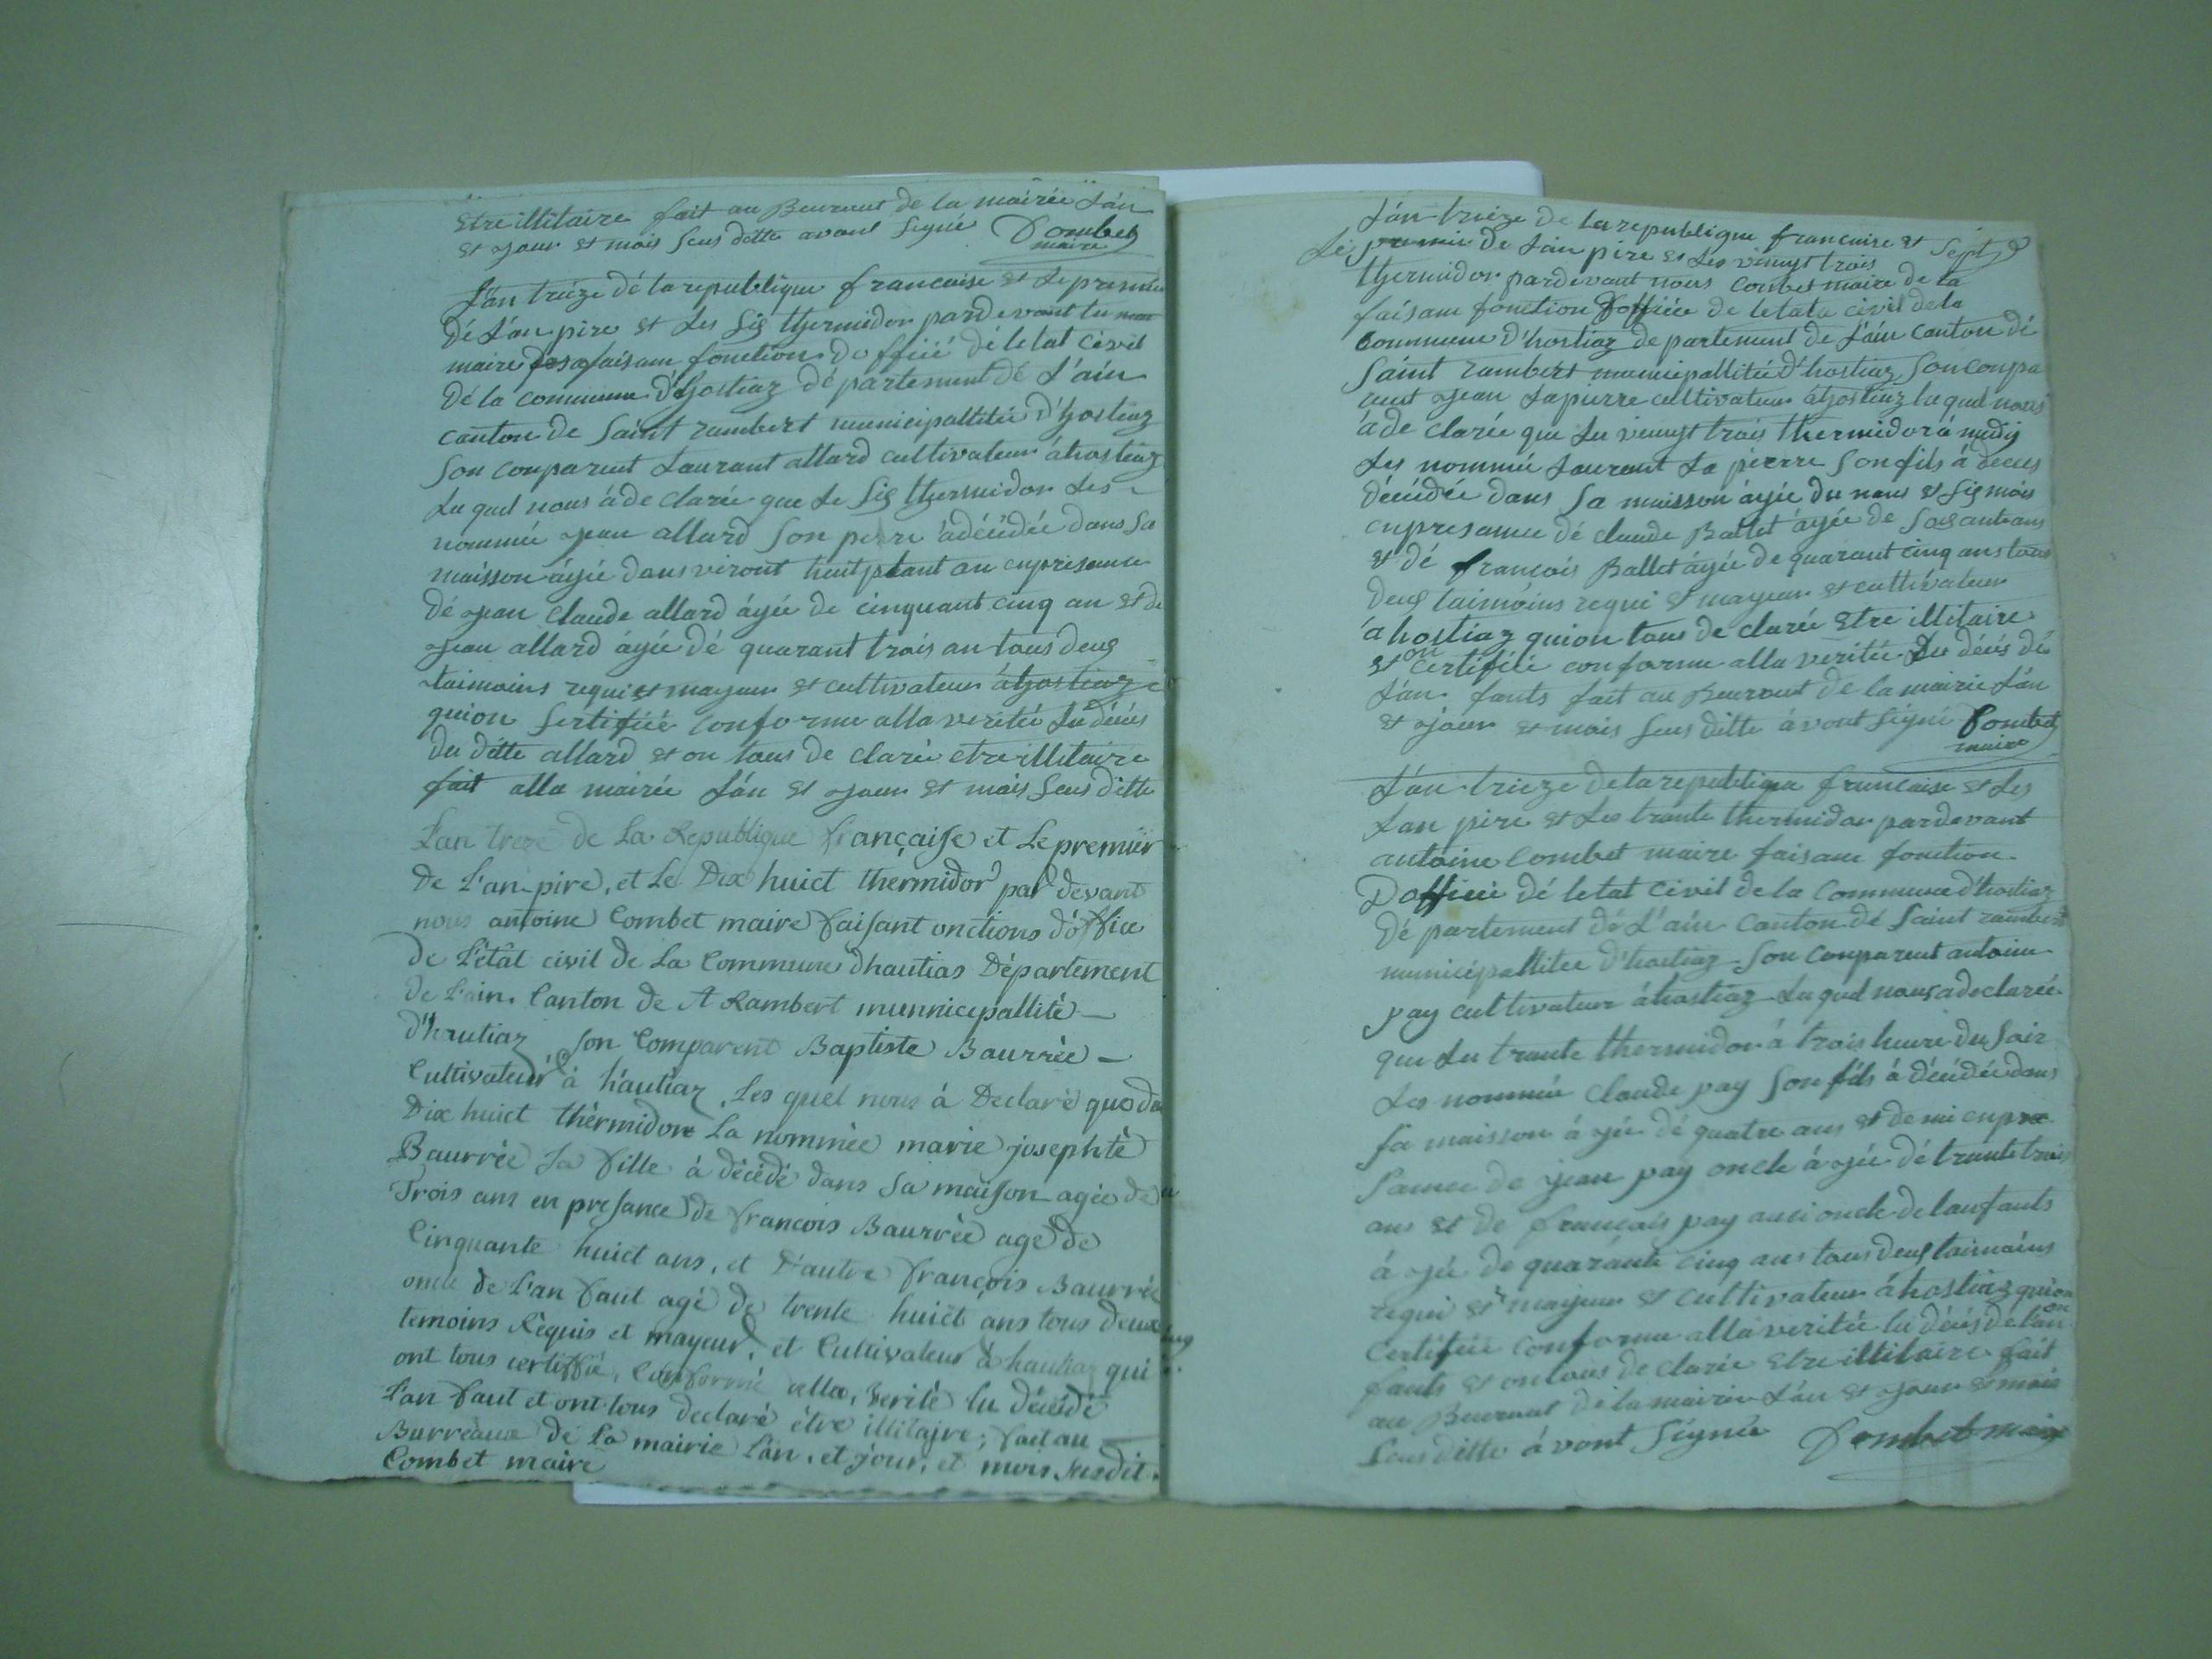 Etre illitaire fait au Beuraut de la mairie L'án
et ojour et mois Sus ditte avont Signé Combet
maire
L'án treize dé la republique francaise et Le premie
dé L'an pire et Les Sis thermidor pardevant
maire faisam fonction dofficié dé letat civil
dé la commune d'hostiaz département dé L'ain
canton de Saint rambert municipallitée d'hostiaz
Son comparent Laurant allard cultivateur á hostiaz
Lu quel nous á de clarée que Le Sis thermidor Les
nommée ojean allard Son perre á décidée dans Sa
maisson áyée dans viront huit ptant an enpresance
dé ojean claude allard áyée de cinquant cinq an et de
ojean allard áyée dé quarant trois an tous deus
taimoins requi et mayeur et cultivateur á hostiaz
quion Sertifiée conforme alla veritée Lu décés
du ditte allard et on tous de clarée etre illitaire
fait alla mairie L'án et ojour et mois Sus ditte
L'an treze de La Republique française et Le premier
de L'an-pire, et Le Dix huict thermidor par devant
nous antoine Combet maire faisant onctions d'office
de L'état civil de La Commune dhautias Département
de L'ain. Canton de St Rambert munnicipallité -
d'hautiaz Son Comparent Baptiste Baurrée -
Cultivateur à háutiaz, Les quel nous à Declaré que du
Dix huict thèrmidore La nommée marie josephte
Baurrée Sa fille à décédé dans Sa maison agée de
Trois ans en presance de francois Baurrée agé de
Cinquante huict ans, et L'autre françois Baurrée
oncle de L'an faut agé de trente huict ans tous deux
temoins Réquis et mayeur, et Cultivateur à hautiaz qui
ont tous certiffié, Conforme alla, verité Lu décédé
L'an faut et ont tous declaré étre illitajre; fait au
Burreaux dé La mairie L'án, et jour, et mois Susdit.
Combet maire
L'án treize de la republique francaise et
Sept
Le premie de L'an pire et Les vinngt trois
thermidor pardevant nous combet maire de la
faisam fonction dofficée de letata civil de la
commune d'hostiaz de partement de L'áin canton dé
Saint rambert municipallitée d'hostiaz Son conpa
rent ojean Lapierre cultivateur á hostiaz lu quel nous
á de clarée que Lu vinngt trois thermidor á midy
Les nommée Laurent La pierre Son fils á deces
décidée dans Sa maisson áyée du nans et Sis mois
enpresance dé claude Ballet áyée de Soisant ans
et dé francois Ballet áyée de quarant cinq ans tous
deus taimoins requi et mayeur et cultivateur
á hostiaz quion tous de clarée Etre illitaire
et on certifiée conforme alla veritée Lu décés dé
L'án fants fait au Beuraut de la mairie L'án
et ojour et mois Sus ditte á vont Signé Combet
maire
L'án trieze de la republique francaise et Les
L'an pire et Les trante thermidor pardevant
antoine Combet maire faisam fonction
Dofficié dé letat civil de la Commune d'hostiaz
Dé partement dé L'áin Canton dé Saint rambert
municipallitee d'hostiaz Son comparent antoine
pay cultivateur á hostiaz Lu quel nous a declarée
que Lu trante thermidor á trois huure du Soir
Les nommée claude pay Son fils á décidée dans
Sa maisson á ojée dé quatre ans et demi enpre
Sance de ojean pay oncle á ojée dé trante trois
ans et de francois pay aussi oncle de lanfants
á ojée de quaránte cinq ans tous deus taimoins
requi et mayeur et cultivateur á hostiaz quion
certifiée conforme alla veritée lu décés dé l'an
fants et on tous de clarée Etre illitaire fait
au Beuraut de la mairie L'án et ojour et mois
Sus ditte á vont Signée Combet maire